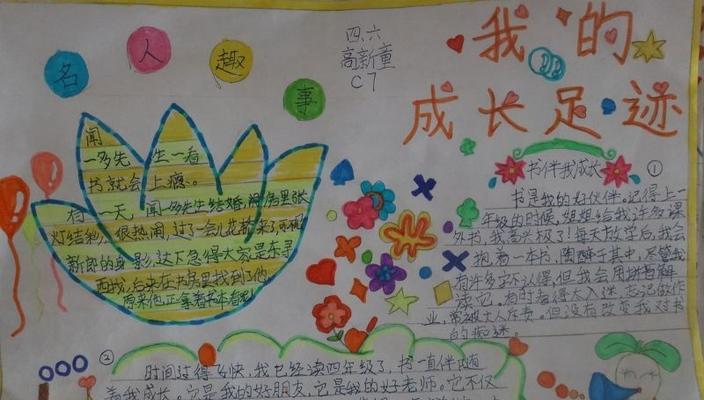 我的
成长足迹
四.六
高新童
C7
名人趣事
闻
一多先生一看
书就会上瘾。
有一天,闻一多先生结婚,
灯结彩,很热闹,过了一会儿花轿来了,
新郎的身影,这下急得大家是东寻
西找,后来在书房里找到了他,
原来他正拿着
书伴我成长
①
书是我的好伙伴。记得上一
年级的时候,妈妈给我许多课
外书,我高兴极了!每天放学后,我会
抱着一本书,陶醉于其中,尽管我
有许多字不认得,但我会用拼音解
读它。有时看得太入迷,忘记做作
业,常被大人斥责。但没有改变我对书
的痴迷。
②
时间过得飞快,我已经读四年级了,书一直伴随
着我成长。它是我的好朋友,它是我的好老师。它不仅